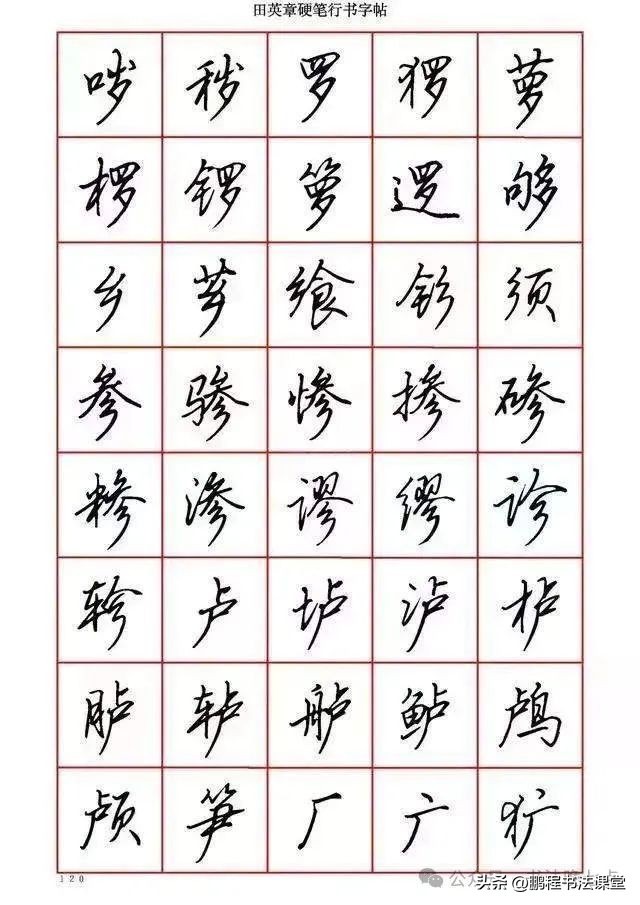 田英章硬笔行书字帖
哕 秽 罗 猡 萝
椤 锣 箩 逻 够
乡 芗 飨 钐 须
参 骖 惨 掺 碜
糁 渗 谬 缪 诊
轸 卢 垆 泸 栌
胪 轳 舻 鲈 鸬
颅 笋 厂 广 犷
120
头条 @鹏程书法课堂